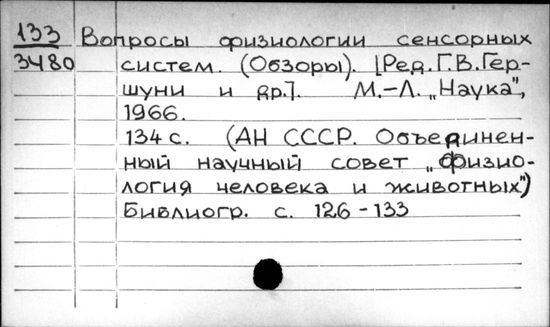 133 Вопросы физиологии сенсорных
3480 систем. (Обзоры). [Ред. Г.В. Гер-
шуни и др.]. М.-Л. „Наука",
1966.
134 с. (АН СССР. Объединен-
ный научный совет „Физио-
логия человека и животных")
Библиогр. с. 126-133